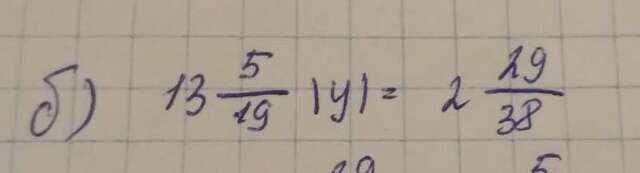 б) 13 5/19 |y| = 2 29/38